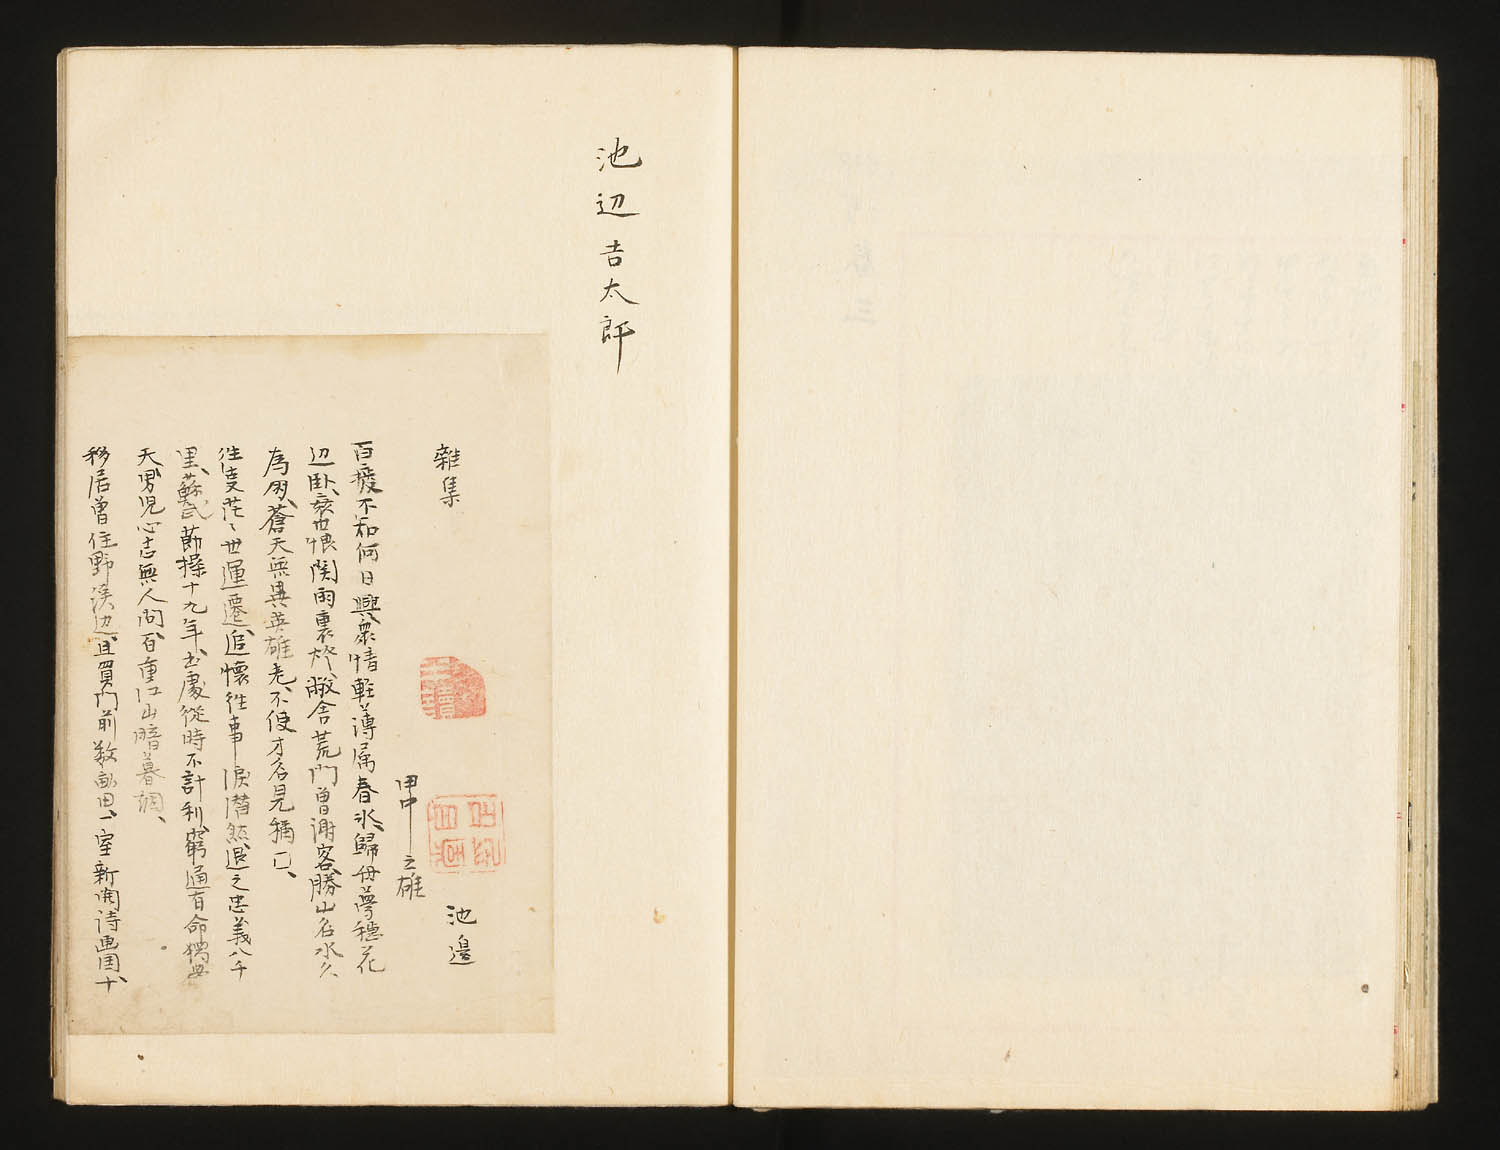 池辺吉太郎
雜集
池邉
甲申之雄
百癈不知何日興、衆情軽薄属春氷、歸舟夢穏花
辺卧、哀世恨関雨裏灯、敝舎荒門曽謝客、勝山名水久
為朋、蒼天無異英雄老、不使才名見稱□、
往叓茫〻世運遷、追懷往事淚潜然、退之忠義八千
里、蘇武節操十九年、出處從時不計利、窮通有命獨
天、男児心志無人問、百重江山暗暮烟、
移居曽住野溪辺、且買門前数畝田、一室新開詩画国、十